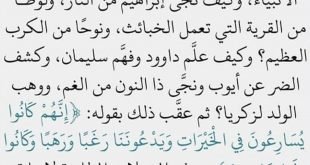 الأنبياء، وكيف نجى إبراهيم من النار، ولوطًا
من القرية التي تعمل الخبائث، ونوحًا من الكرب
العظيم؟ وكيف علَّم داوود وفهَّم سليمان، وكشف
الضر عن أيوب ونجَّى ذا النون من الغم، ووهب
الولد لزكريا؟ ثم عقَّب ذلك بقوله: ﴿إِنَّهُمْ كَانُوا
يُسَارِعُونَ فِي الْخَيْرَاتِ وَيَدْعُونَنَا رَغَبًا وَرَهَبًا وَكَانُوا